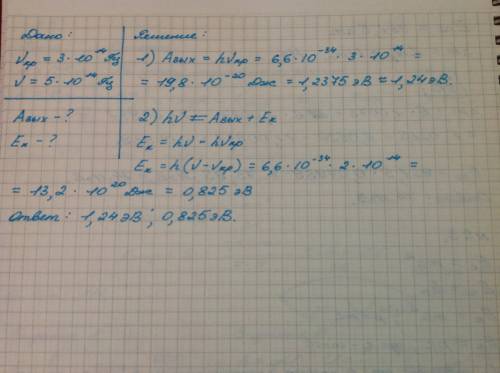 Дано:
νкр = 3 · 10¹⁴ Гц
ν = 5 · 10¹⁴ Гц
Aвых - ?
Eк - ?
Решение:
1) Aвых = hνкр = 6,6 · 10⁻³⁴ · 3 · 10¹⁴ =
= 19,8 · 10⁻²⁰ Дж = 1,2375 эВ = 1,24 эВ.
2) hν = Aвых + Eк
Eк = hν - hνкр
Eк = h(ν - νкр) = 6,6 · 10⁻³⁴ · 2 · 10¹⁴ =
= 13,2 · 10²⁰ Дж = 0,825 эВ
Ответ: 1,24 эВ; 0,825 эВ.